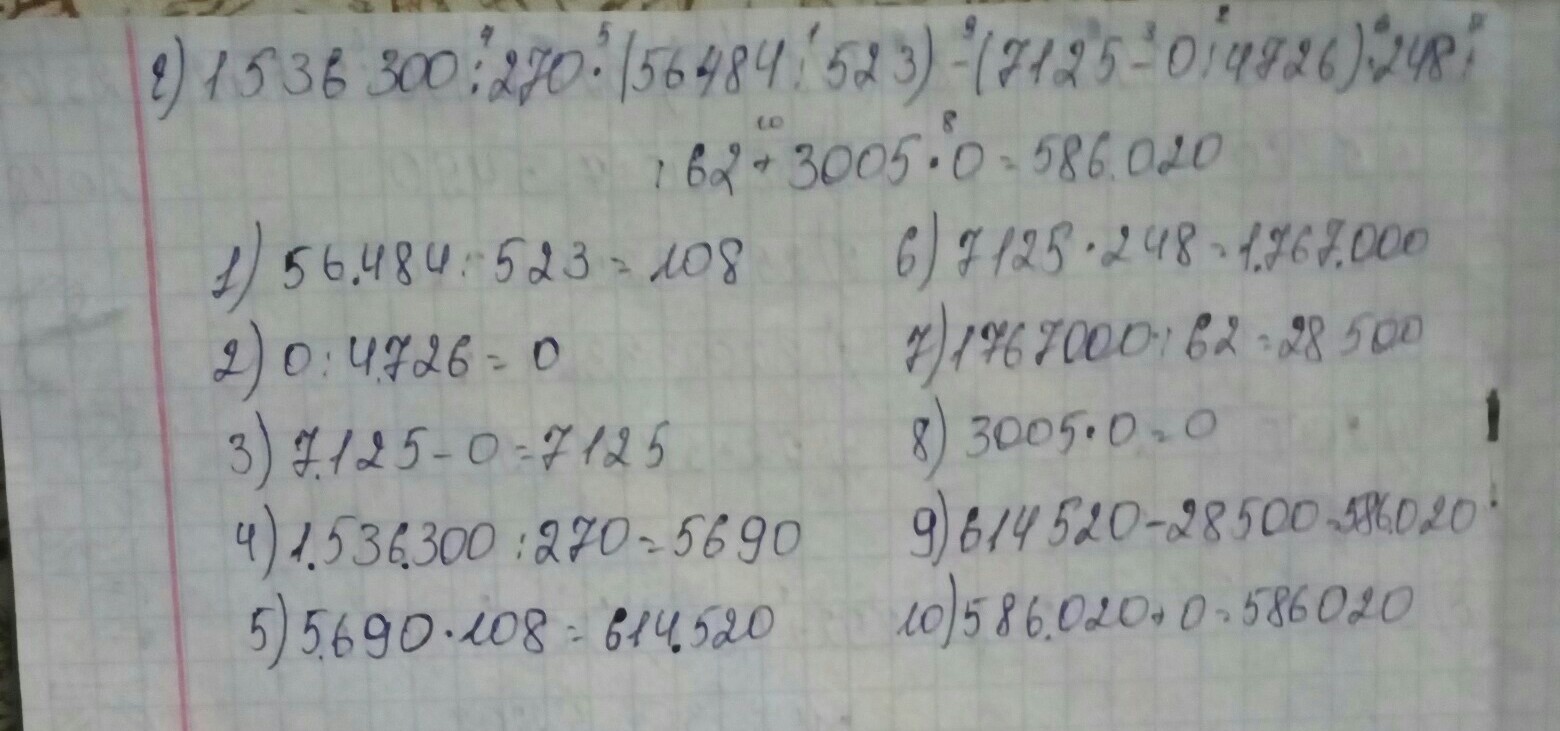 2) 1536300:270·(56484:523)-(7125-0:4726)·248:
:62+3005·0=586.020
1) 56.484:523=108
2) 0:4.726=0
3) 7.125-0=7125
4) 1.536.300:270=5690
5) 5.690·108=614.520
6) 7125·248=1.767.000
7) 1767000:62=28500
8) 3005·0=0
9) 614520-28500=586.020
10) 586.020+0=586020